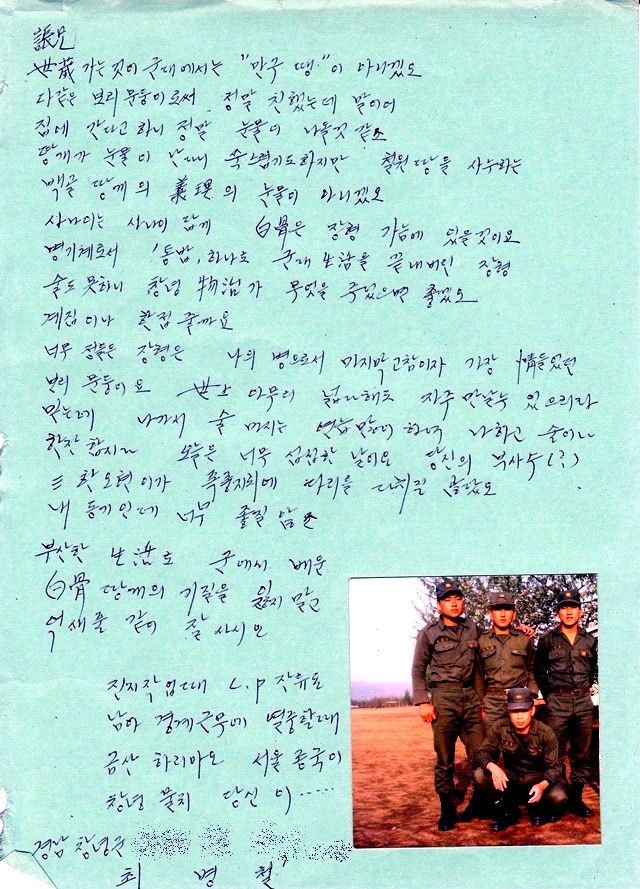 張兄
世歲 가는것이 군대에서는 "만구 땡"이 아니겠오
다같은 보리 문둥이로써 정말 친했는데 말이여
집에 간다고 하니 정말 눈물이 나올것 같소
땅개가 눈물이 난다니 쑥스럽기도하지만 철원 땅을 사수하는
백골 땅개의 義理의 눈물이 아니겠오
사나이는 사나이 답게 白骨은 장형 가슴에 있을것이요
병기계로서 "통밥" 하나로 군대 生活을 끝내버린 장형
술도 못하니 창녕 物治가 무엇을 주었으면 좋겠오
계집이나 한점 줄까요
너무 정들은 장형은 나의 병으로서 마지막고참이자 가장 情들었던
보리 문둥이요 世上 아무리 넓다해도 자주 만날수 있으리라
믿는데 나가서 술 마시는 연습많이 하여 나하고 술이나
한잔 합시다 오늘은 너무 섭섭한 날이요 당신의 부사수(?)
오현이가 족구시에 다리를 다쳐
내 동기인데 너무 좋질 않소
부산한 生活로 군에서 배운
白骨 땅개의 기질을 잃지 말고
억새풀 같이 잘 사시오
진지작업때 L.P 잔류로
남아 경계근무에 열중할때
금산 하리마오 서울 종국이
창녕 물치 당신이 .....
경남 창녕군
최 병 철